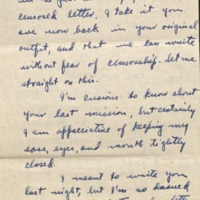 censored letter. I take it you
are now back in your original
outfit, and that we can write
without fear of censorship. Set me
straight on this.
I'm curious to know about
your last mission, but certainly
I am appreciative of keeping my
ears, eyes, and mouth tightly
closed.
I meant to write you
last night, but I'm so darned